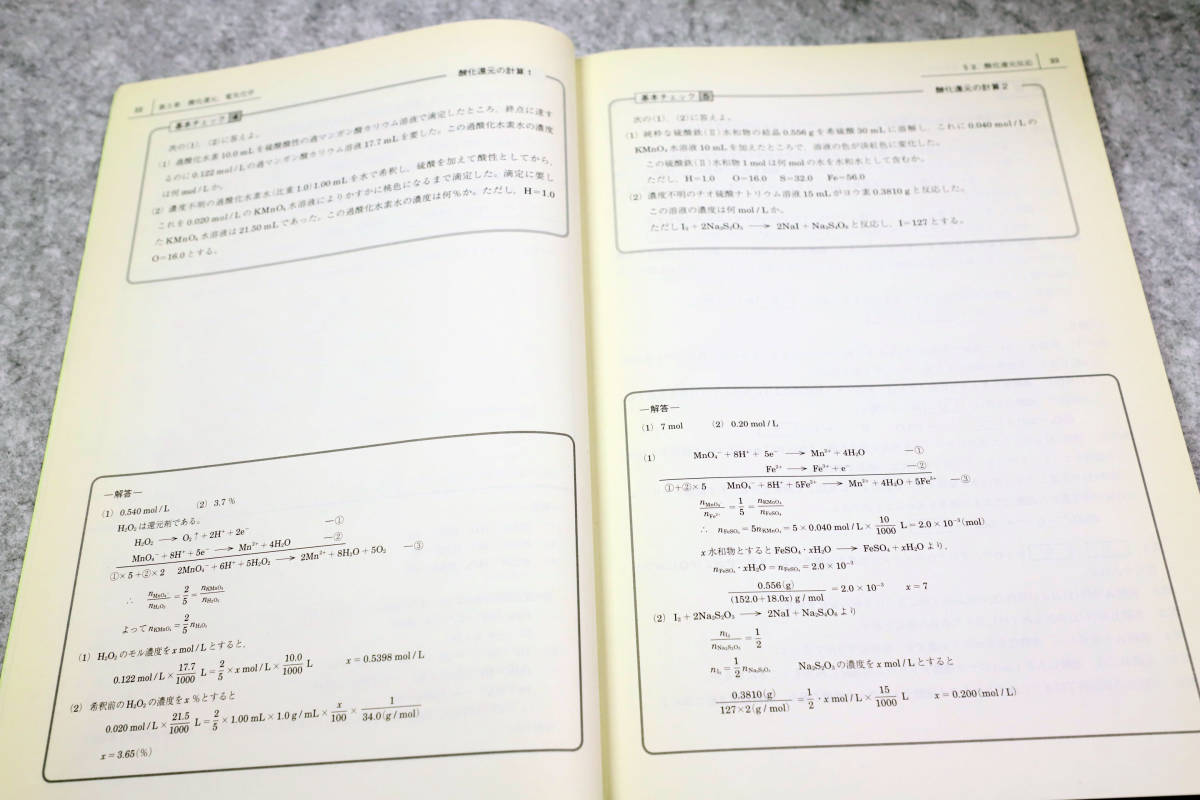 第5章 酸化還元，電気化学
酸化還元の計算1
基本チェック 4
次の(1)，(2)に答えよ。
(1) 過酸化水素10.0 mLを硫酸酸性の過マンガン酸カリウム溶液で滴定したところ，終点に達す
るのに0.122 mol/Lの過マンガン酸カリウム溶液17.7 mLを要した。この過酸化水素水の濃度
は何mol/Lか。
(2) 濃度不明の過酸化水素水(比重1.0)1.00 mLを水で希釈し，硫酸を加えて酸性としてから，
これを0.020 mol/LのKMnO₄水溶液によりかすかに桃色になるまで滴定した。滴定に要し
たKMnO₄水溶液は21.50 mLであった。この過酸化水素水の濃度は何%か。ただし，H=1.0
O=16.0とする。
―解答―
(1) 0.540 mol/L (2) 3.7 %
H₂O₂は還元剤である。
H₂O₂ ⟶ O₂↑+2H⁺+2e⁻ ―①
MnO₄⁻+8H⁺+5e⁻ ⟶ Mn²⁺+4H₂O ―②
①×5+②×2 2MnO₄⁻+6H⁺+5H₂O₂ ⟶ 2Mn²⁺+8H₂O+5O₂ ―③
∴ n_MnO₄⁻/n_H₂O₂ = 2/5 = n_KMnO₄/n_H₂O₂
よって n_KMnO₄ = 2/5 n_H₂O₂
(1) H₂O₂のモル濃度をx mol/Lとすると，
0.122 mol/L × 17.7/1000 L = 2/5 × x mol/L × 10.0/1000 L x=0.5398 mol/L
(2) 希釈前のH₂O₂の濃度をx %とすると
0.020 mol/L × 21.5/1000 L = 2/5 × 1.00 mL × 1.0 g/mL × x/100 × 1/34.0(g/mol)
x=3.65(%)
§2 酸化還元反応
酸化還元の計算2
基本チェック 5
次の(1)，(2)に答えよ。
(1) 純粋な硫酸鉄(Ⅱ)水和物の結晶0.556 gを希硫酸30 mLに溶解し，これに0.040 mol/Lの
KMnO₄水溶液10 mLを加えたところで，溶液の色が淡紅色に変化した。
この硫酸鉄(Ⅱ)水和物1 molは何molの水を水和水として含むか。
ただし，H=1.0 O=16.0 S=32.0 Fe=56.0
(2) 濃度不明のチオ硫酸ナトリウム溶液15 mLがヨウ素0.3810 gと反応した。
この溶液の濃度は何mol/Lか。
ただしI₂+2Na₂S₂O₃ ⟶ 2NaI+Na₂S₄O₆と反応し，I=127とする。
―解答―
(1) 7 mol (2) 0.20 mol/L
(1) MnO₄⁻+8H⁺+5e⁻ ⟶ Mn²⁺+4H₂O ―①
Fe²⁺ ⟶ Fe³⁺+e⁻ ―②
①+②×5 MnO₄⁻+8H⁺+5Fe²⁺ ⟶ Mn²⁺+4H₂O+5Fe³⁺ ―③
n_MnO₄⁻/n_Fe²⁺ = 1/5 = n_KMnO₄/n_FeSO₄
∴ n_FeSO₄ = 5n_KMnO₄ = 5×0.040 mol/L × 10/1000 L = 2.0×10⁻³(mol)
x水和物とするとFeSO₄・xH₂O ⟶ FeSO₄+xH₂Oより，
n_FeSO₄・xH₂O = n_FeSO₄ = 2.0×10⁻³
0.556(g)/(152.0+18.0x)g/mol = 2.0×10⁻³ x=7
(2) I₂+2Na₂S₂O₃ ⟶ 2NaI+Na₂S₄O₆より
n_I₂/n_Na₂S₂O₃ = 1/2
n_I₂ = 1/2 n_Na₂S₂O₃ Na₂S₂O₃の濃度をx mol/Lとすると
0.3810(g)/127×2(g/mol) = 1/2・x mol/L × 15/1000 L x=0.200(mol/L)